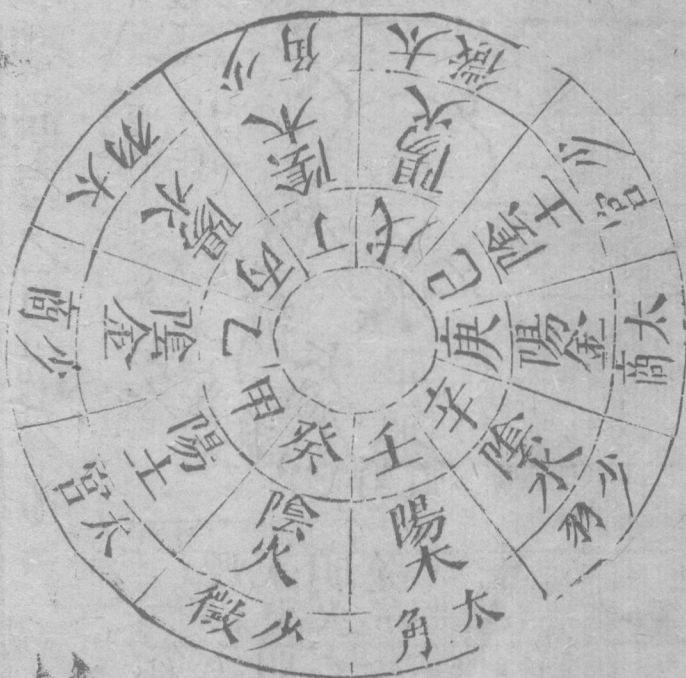 甲 陽土 太宮
乙 陰金 少商
丙 陽水 太羽
丁 陰木 少角
戊 陽火 太徵
己 陰土 少宮
庚 陽金 太商
辛 陰水 少羽
壬 陽木 太角
癸 陰火 少徵